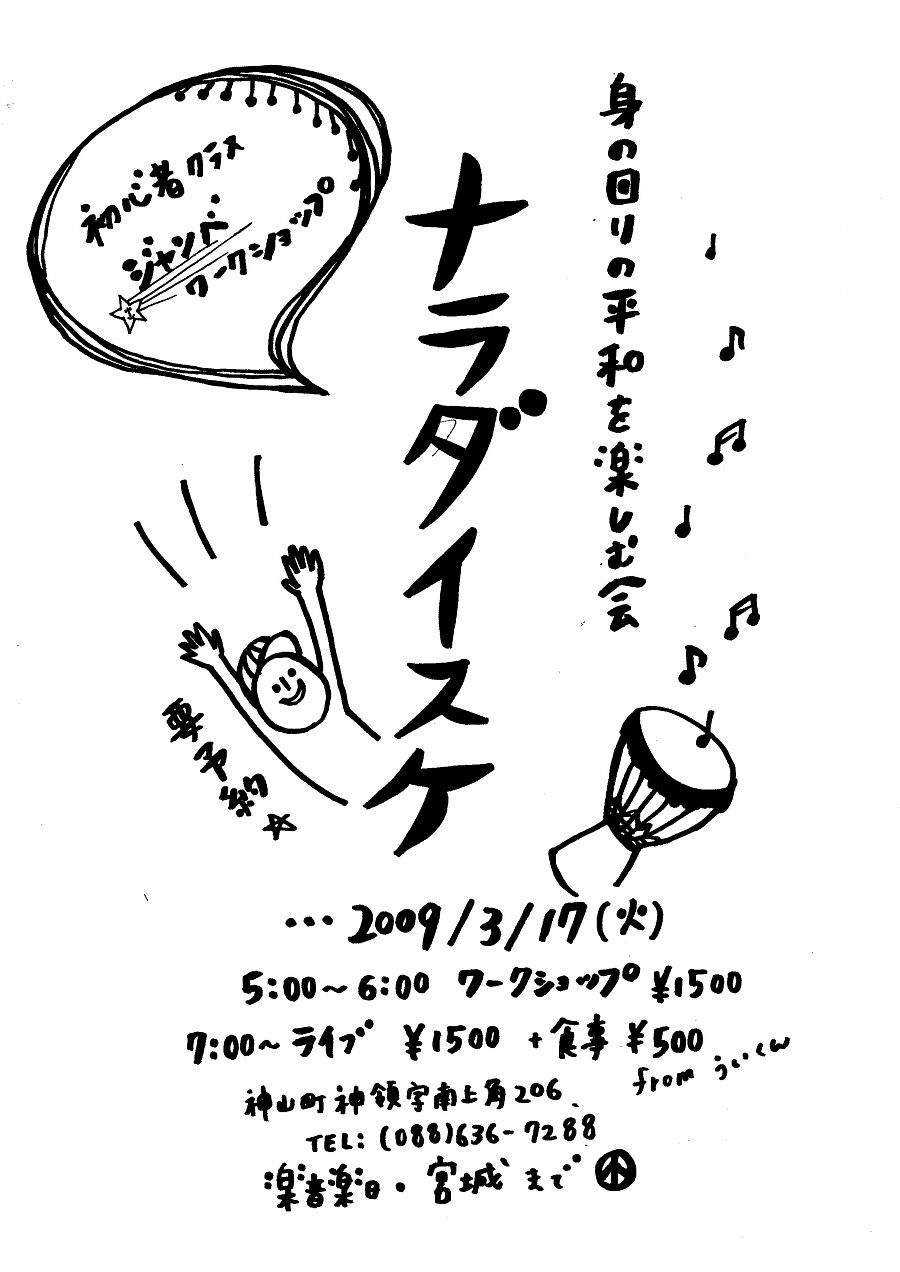 身の回りの平和を楽しむ会
ナラダイスケ
初心者クラス
ジャンベ
ワークショップ
要予約☆
…2009/3/17(火)
5:00〜6:00 ワークショップ ¥1500
7:00〜ライブ ¥1500 +食事 ¥500
from うぃくん
神山町神領字南上角206
TEL:(088)636-7288
楽音楽日・宮城まで